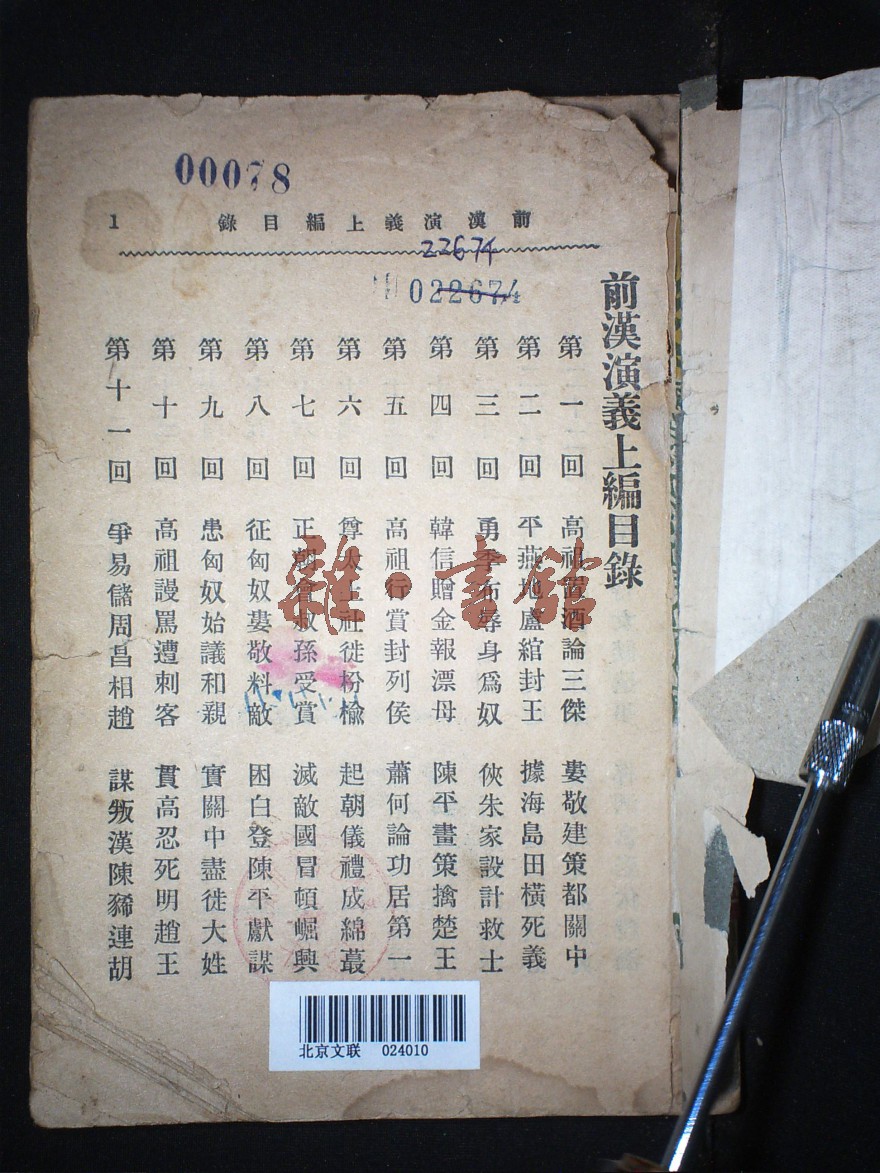 00078
前漢演義上編目錄 1
22674
022674
前漢演義上編目錄
第一回 高祖置酒論三傑 婁敬建策都關中
第二回 平燕地盧綰封王 據海島田橫死義
第三回 勇季布辱身爲奴 俠朱家設計救士
第四回 韓信贈金報漂母 陳平畫策擒楚王
第五回 高祖行賞封列侯 蕭何論功居第一
第六回 尊太上社徙枌榆 起朝儀禮成綿蕞
第七回 正朝會叔孫受賞 滅敵國冒頓崛興
第八回 征匈奴婁敬料敵 困白登陳平獻謀
第九回 患匈奴始議和親 實關中盡徙大姓
第十回 高祖謾罵遭刺客 貫高忍死明趙王
第十一回 爭易儲周昌相趙 謀叛漢陳豨連胡
雜·書館
北京文联 024010